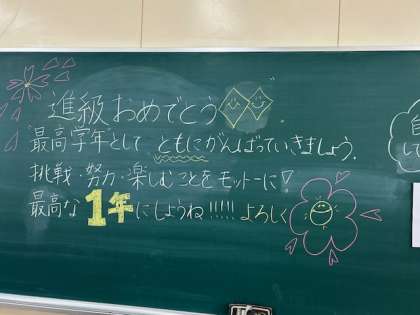 進級おめでとう
最高学年として ともにがんばっていきましょう.
挑戦・努力・楽しむことをモットーに!
最高な 1年にしようね!!!!! よろしく